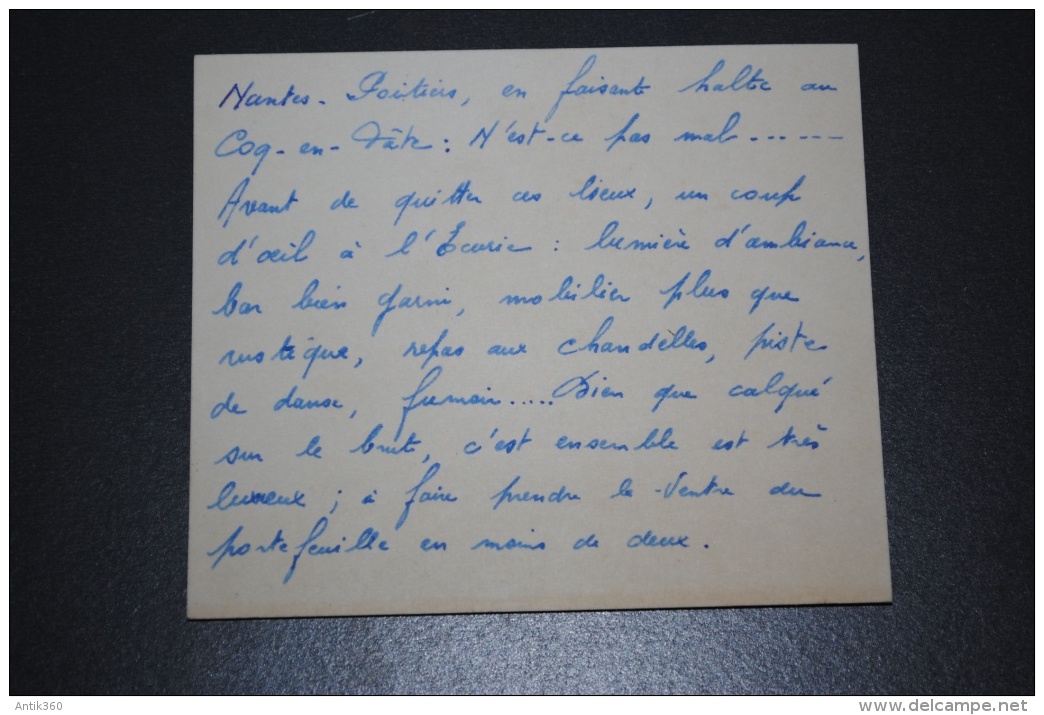 Nantes - Poitiers, en faisant halte au
Coq-en-Pâte : N'est-ce pas mal ------
Avant de quitter ces lieux, un coup
d'œil à l'Écurie : lumière d'ambiance,
bar bien garni, mobilier plus que
rustique, repas aux chandelles, piste
de danse, fumoir..... Bien que calqué
sur le brut, c'est ensemble est très
luxueux ; à faire prendre le ventre du
portefeuille en moins de deux.
Antik360
delcampe.net